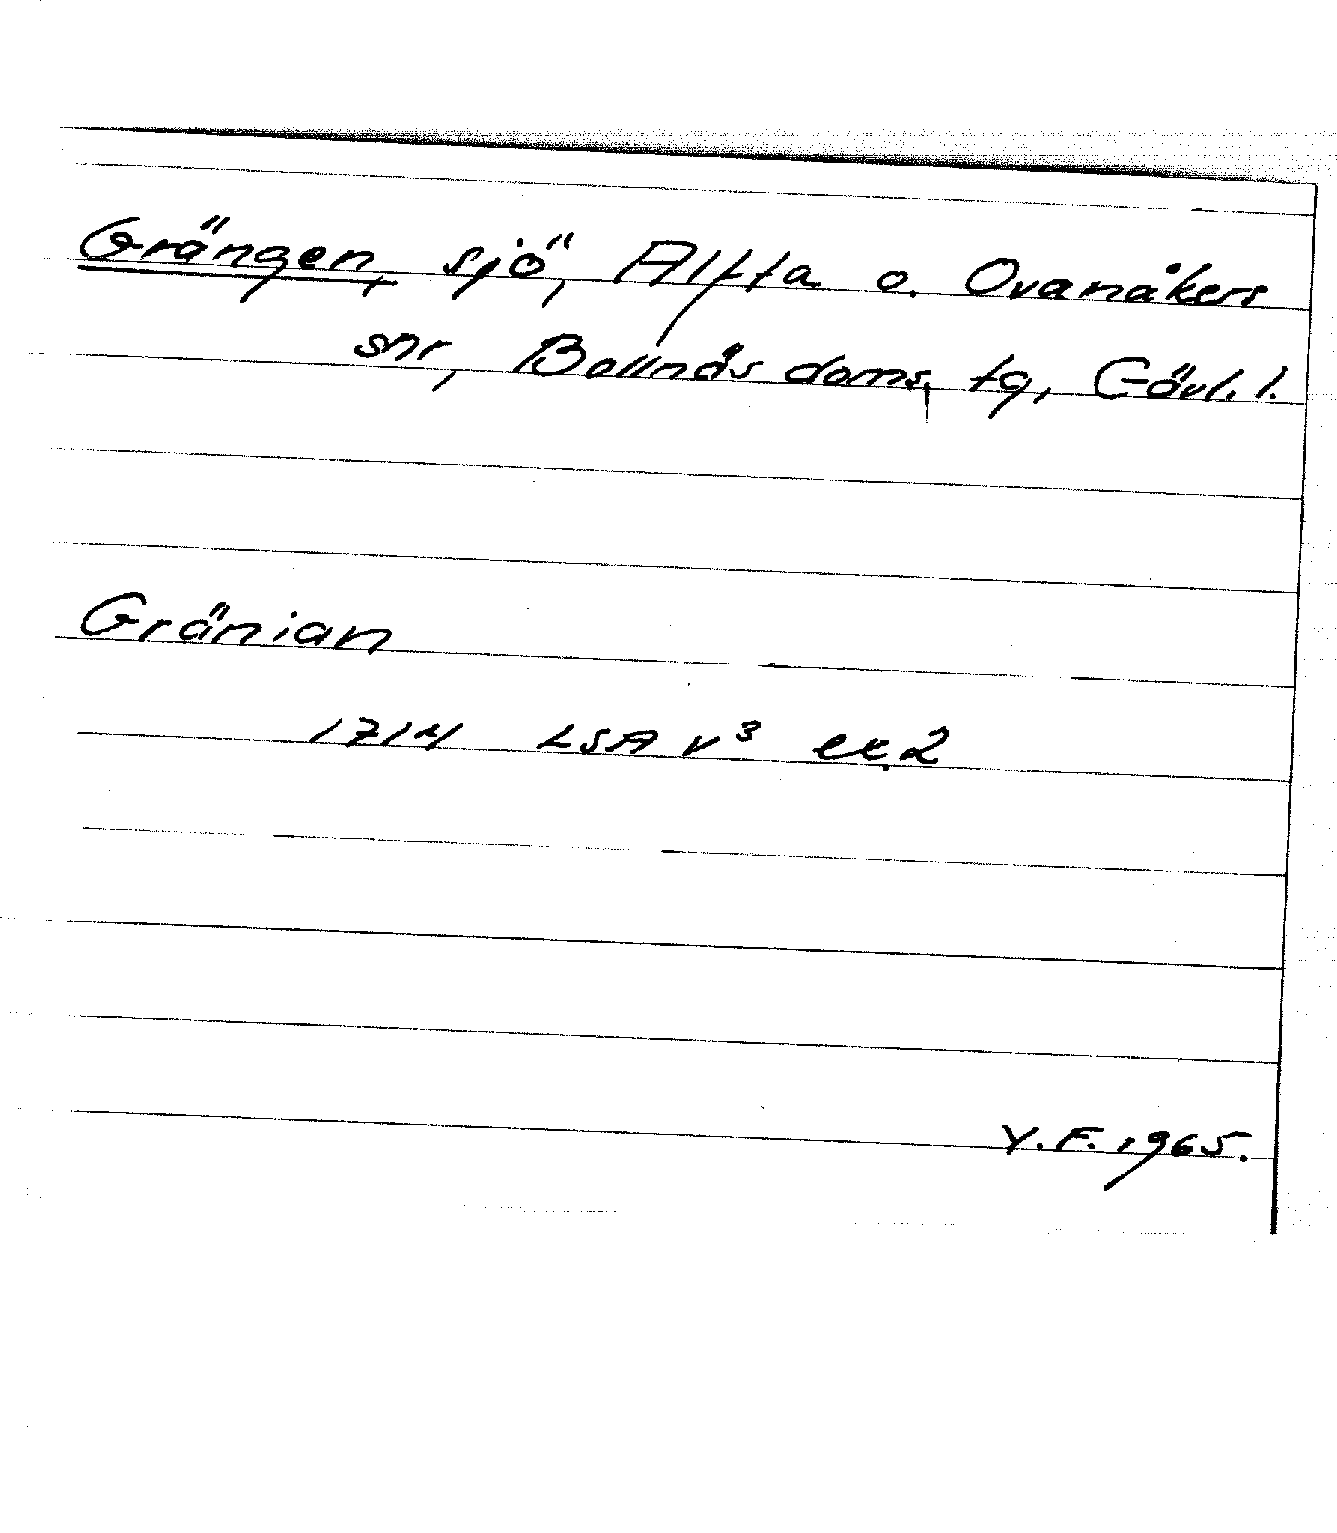 Grängen, sjö, Alfta o. Ovanåkers
snr, Bollnäs doms. tg, Gävl. l.
Gränian
1714 LSA v³ ex. 2
Y.F. 1965.